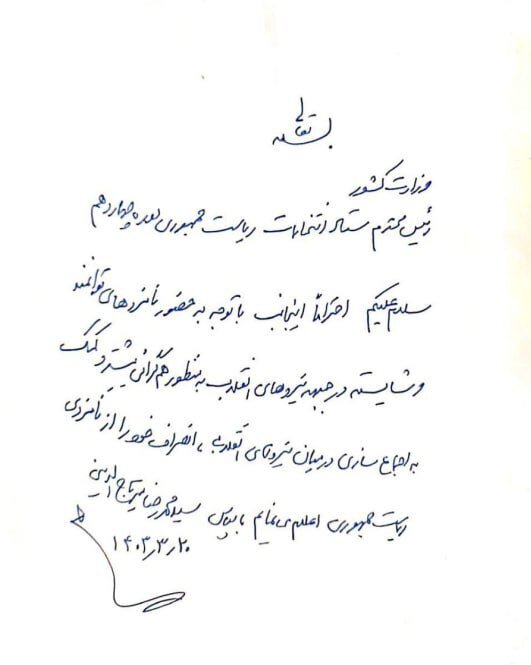 بسمه تعالی
وزارت کشور
رئیس محترم ستاد انتخابات ریاست جمهوری دوره چهاردهم
سلام علیکم احتراماً اینجانب با توجه به حضور نامزدهای توانمند
و شایسته در جبهه نیروهای انقلاب به منظور هم گرائی بیشتر و کمک
به اجماع سازی در میان نیروهای انقلابی، انصراف خود را از نامزدی
ریاست جمهوری اعلام می نمایم با سپاس سید محمدرضا میرتاج الدینی
۱۴۰۳٫۳٫۲۰